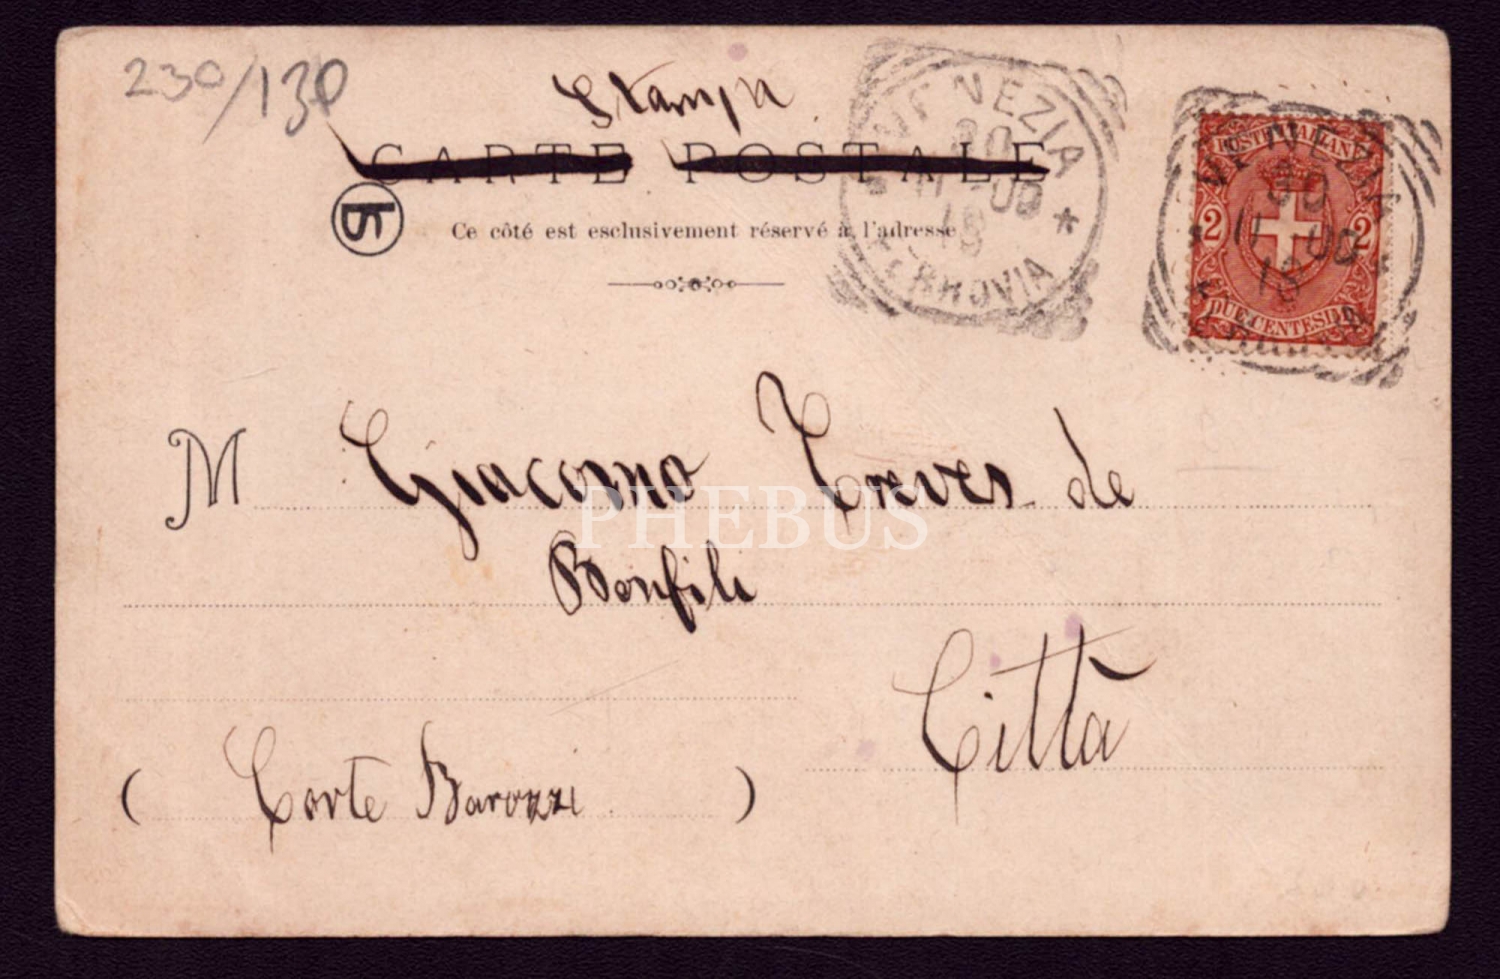 230/130
Stampa
CARTE POSTALE
Ce côté est esclusivement réservé à l'adresse
VENEZIA
30
11-00
18
FERROVIA
POSTE ITALIANE
2 2
DUE CENTESIMI
VENEZIA
30
11 00
18
M Giacomo Treves de
PHEBUS
Bonfili
Città
( Corte Barozzi )